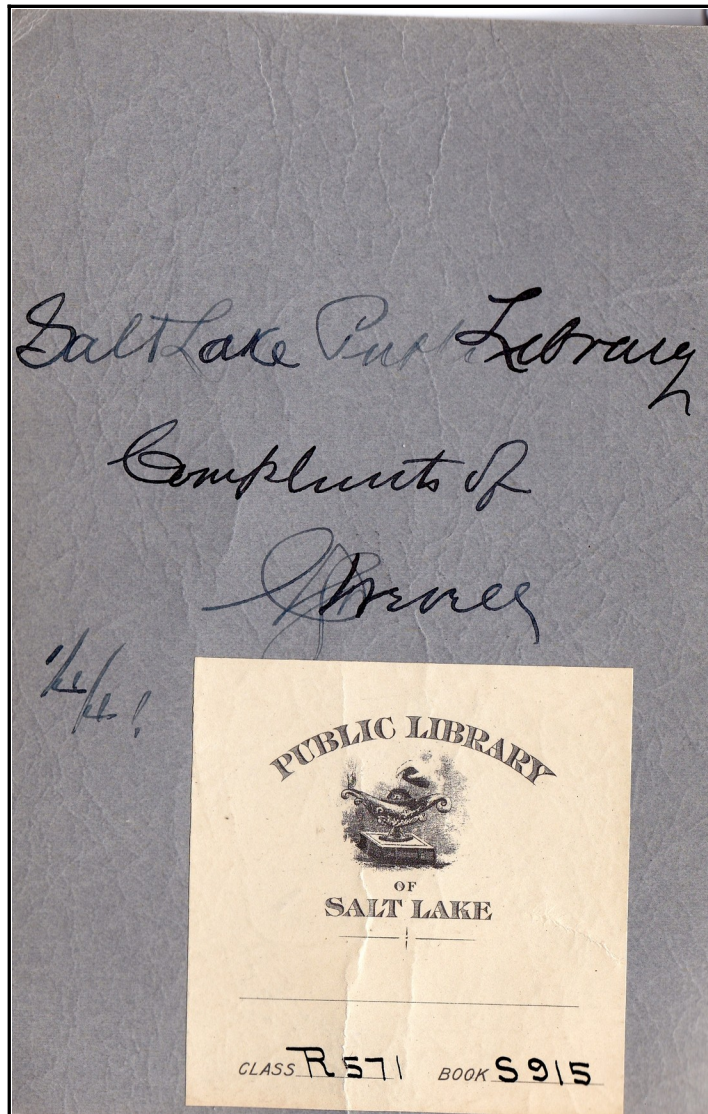 Salt Lake Public Library
Compliments of
1/4/41
PUBLIC LIBRARY
OF
SALT LAKE
CLASS R 571 BOOK S 915